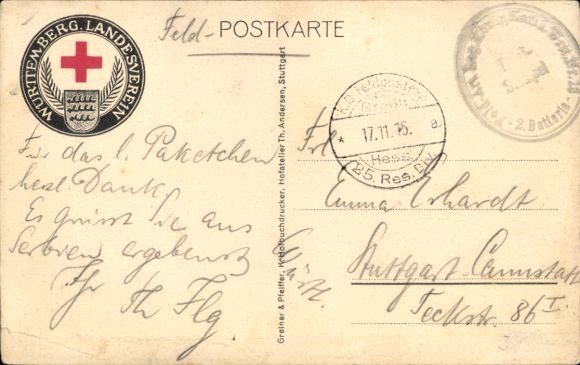 Feld-
POSTKARTE
WÜRTTEMBERG. LANDESVEREIN
K.D. Feldpostexp.
Großh.
* 17.11.15. a
Hess.
25. Res. Div.
2. Batterie
Für das l. Paketchen
herzl. Dank.
Es grüsst Sie aus
Serbien ergebenst
Ihr Th Flg.
Greiner & Pfeiffer, K. Hofbuchdrucker. Hofatelier Th. Andersen, Stuttgart
Frl
Emma Erhardt
Stuttgart Cannstatt
Teckstr. 86 I
Württ.